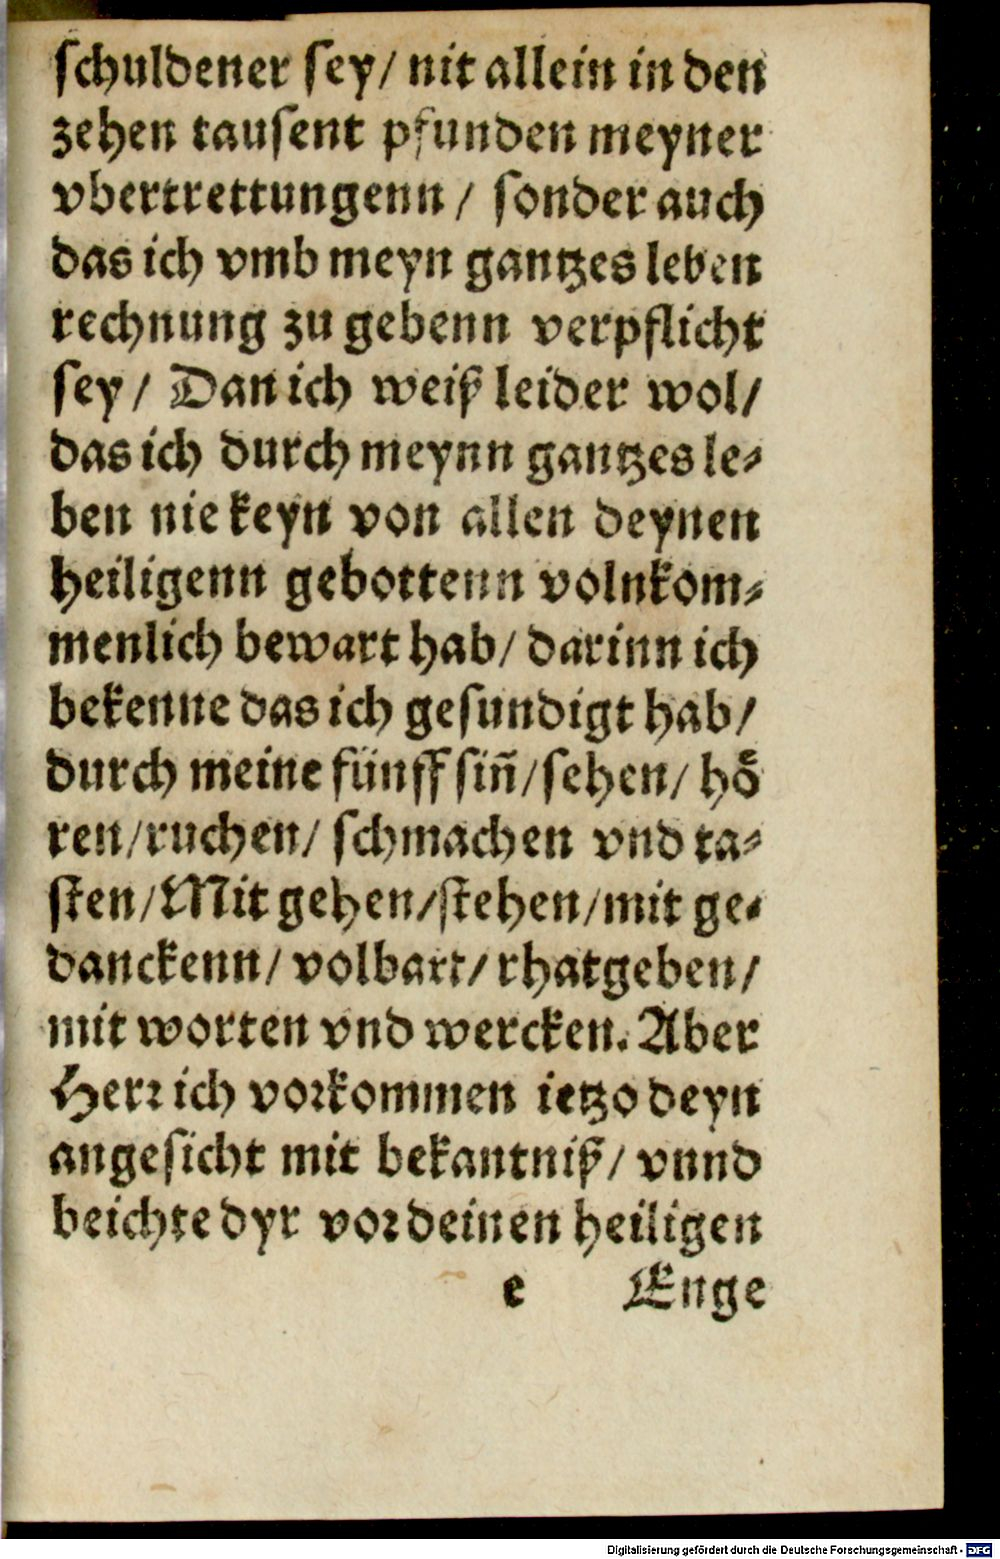 schuldener sey/ nit allein in den
zehen tausent pfunden meyner
vbertrettungenn / sonder auch
das ich vmb meyn gantzes leben
rechnung zu gebenn verpflicht
sey/ Dan ich weiß leider wol/
das ich durch meynn gantzes le⸗
ben nie keyn von allen deynen
heiligenn gebottenn volnkom⸗
menlich bewart hab/ darinn ich
bekenne das ich gesundigt hab/
durch meine fünff siñ/sehen/ hoͤ
ren/ruchen/ schmachen vnd ta⸗
sten/Mit gehen/stehen/mit ge⸗
danckenn/ volbart/ rhatgeben/
mit worten vnd wercken. Aber
Herr ich vorkommen ietzo deyn
angesicht mit bekantniß/ vnnd
beichte dyr vor deinen heiligen
e Enge
Digitalisierung gefördert durch die Deutsche Forschungsgemeinschaft - DFG